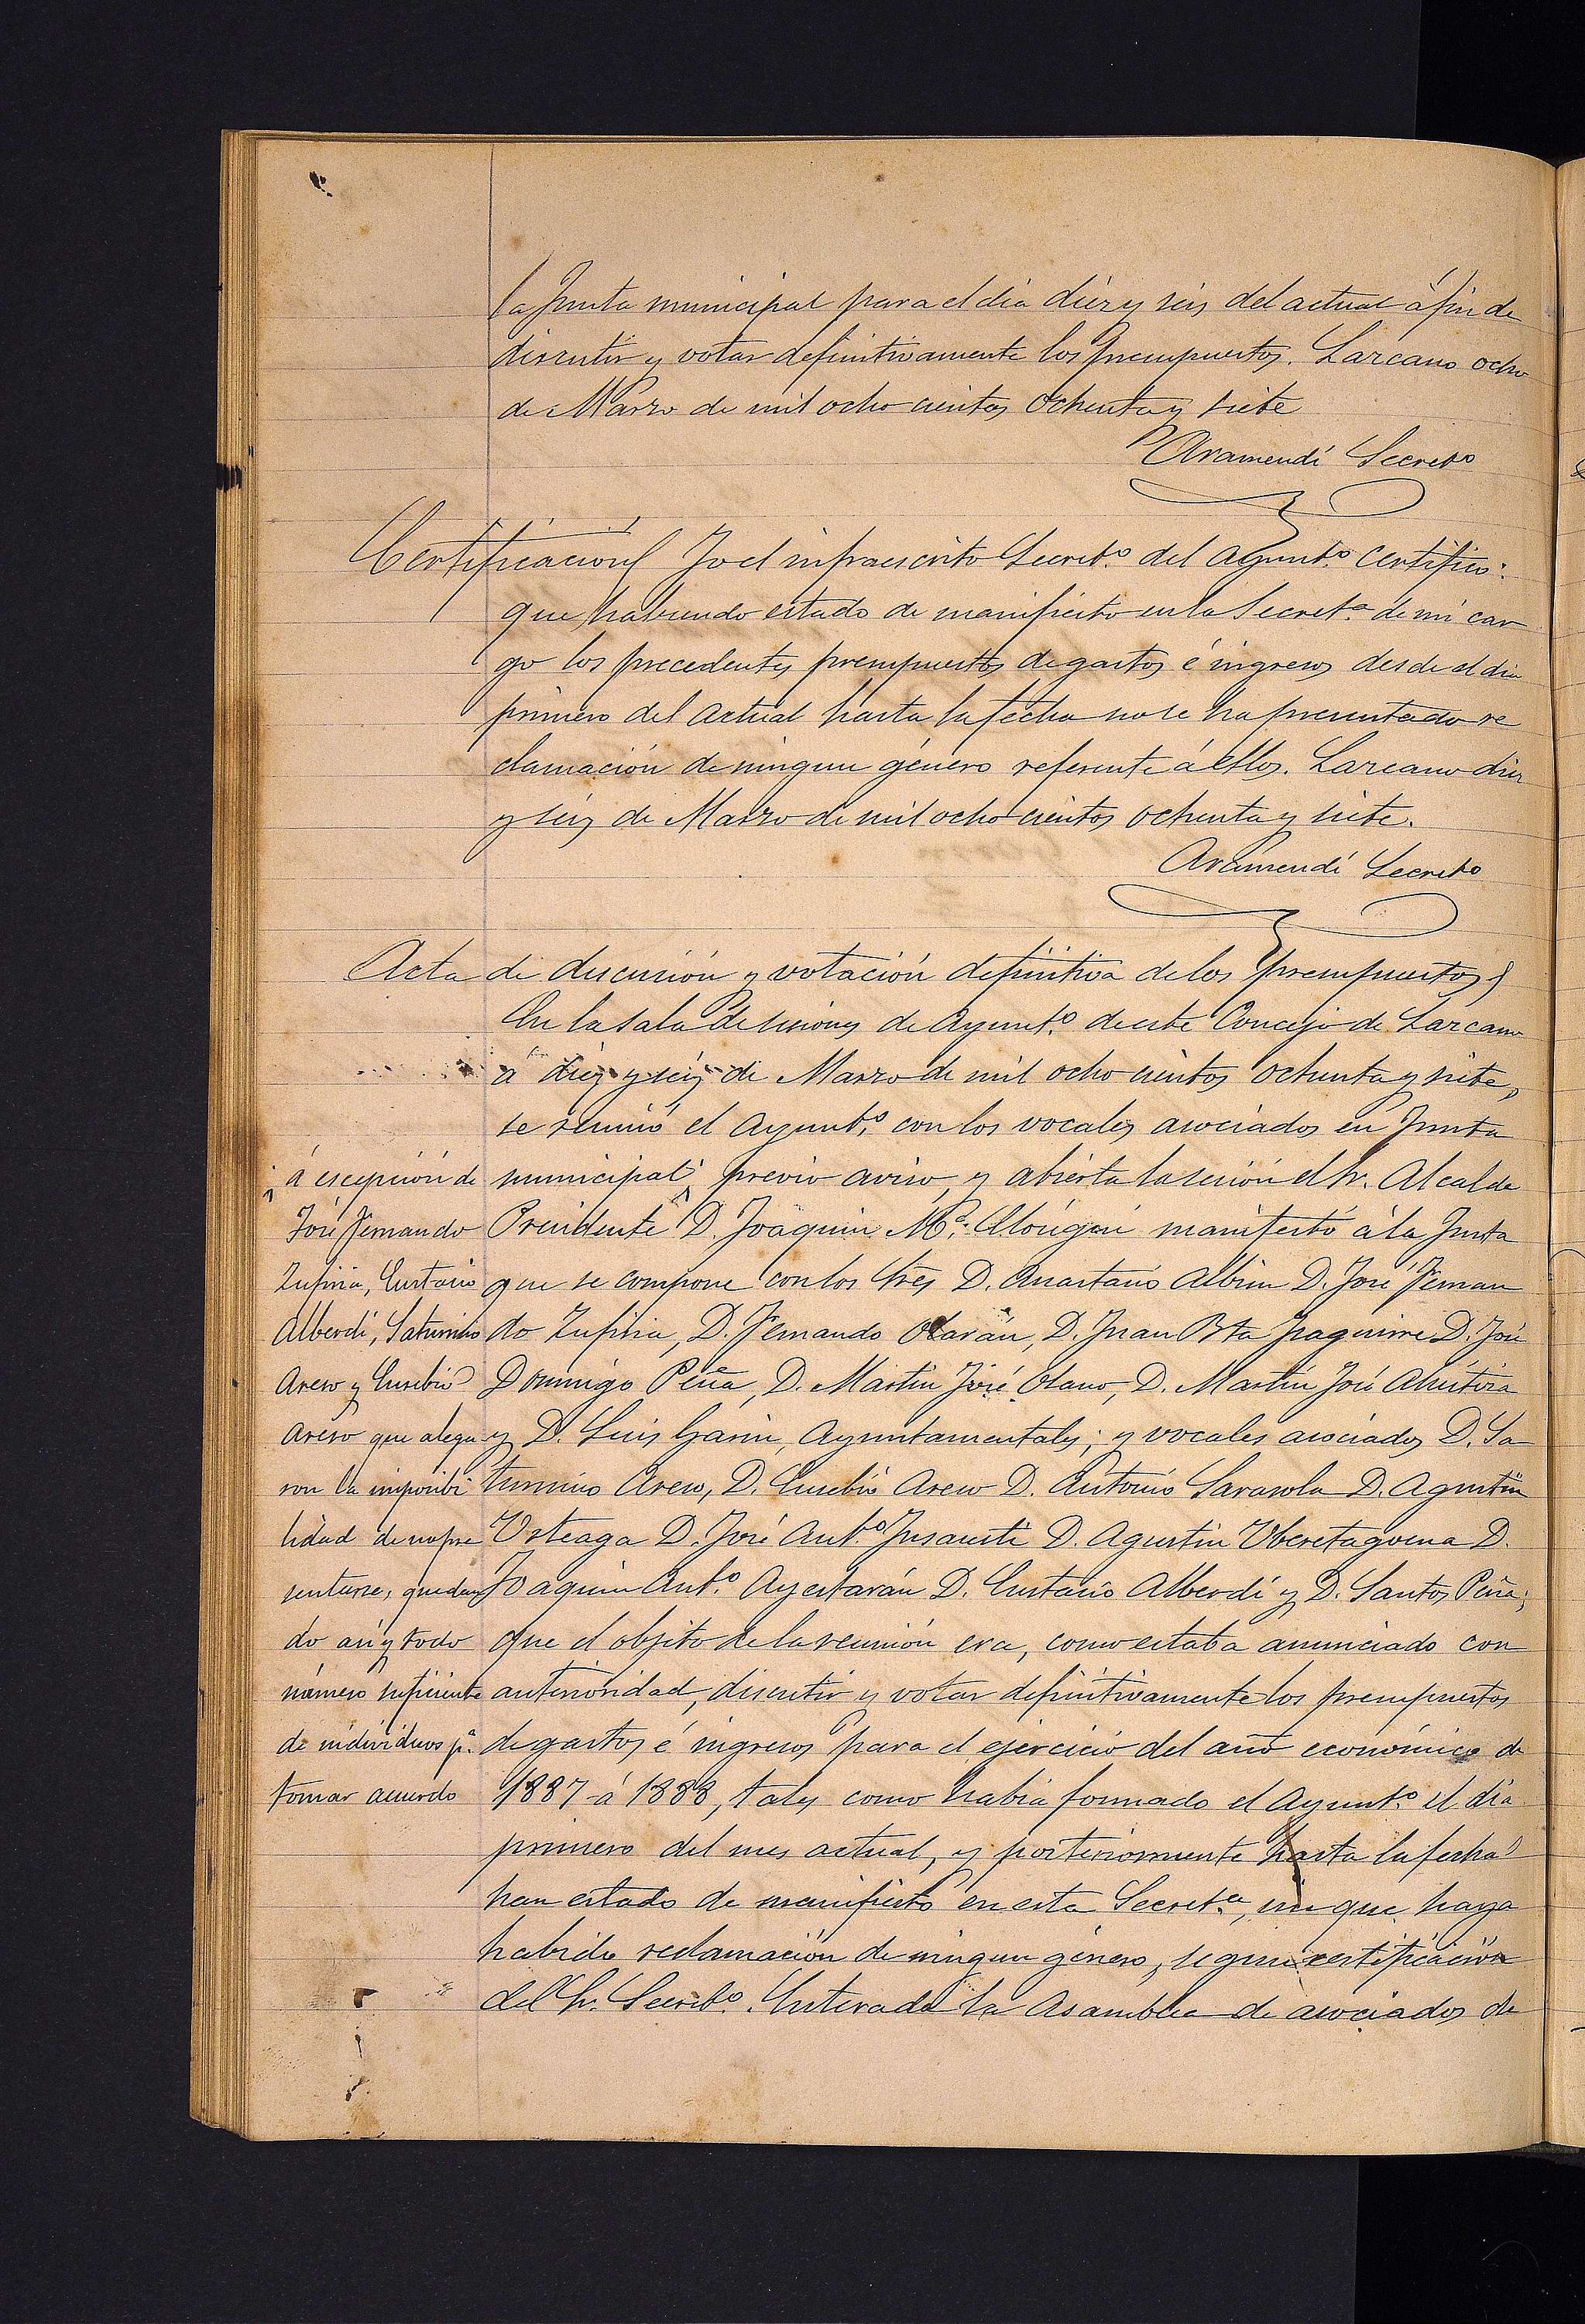 la Junta municipal para el dia diez y seis del actual á fin de
discutir y votar definitivamente los presupuestos. Lazcano ocho
de Marzo de mil ocho cientos ochenta y siete
Aramendi Secretº
Certificación Yo el infraescrito Secretº. del Ayuntº. certifico:
que habiendo estado de manifiesto en la Secretª. de mi car
go los precedentes presupuestos de gastos é ingresos desde el dia
primero del actual hasta la fecha no se ha presentado re
clamación de ningun género referente á ellos. Lazcano diez
y seis de Marzo de mil ocho cientos ochenta y siete.
Aramendi Secretº
Acta de discusión y votación definitiva de los presupuestos
En la sala de sesiones de Ayuntº. de este Concejo de Lazcano
á diez y seis de Marzo de mil ocho cientos ochenta y siete,
se reunió el Ayuntº. con los vocales asociados en Junta
municipal, previo aviso, y abierta la sesión el Sr. Alcalde
Presidente D. Joaquin Mª. manifestó á la Junta
que se compone con los Sres D. Anastasio Albisu D. José Fernan
do Zufiria, D. Fernando Olarán, D. Juan Bta Yzaguirre D. José
Domingo Peña, D. Martin José Olano, D. Martin José
y D. Luis Garin, Ayuntamentales; y vocales asociados D. Sa
turnino Areso, D. Eusebio Areso D. Antonio Sarasola D. Agustin
Urteaga D. José Antº. Ynsausti D. Agustin Yberetagoena D.
Joaquin Antº. Ayestarán D. Eustasio Alberdi y D. Santos Peña;
que el objeto de la reunión era, como estaba anunciado con
anterioridad, discutir y votar definitivamente los presupuestos
de gastos é ingresos para el ejercicio del año económico de
1887 á 1888, tales como habia formado el Ayuntº. el dia
primero del mes actual, y posteriormente hasta la fecha
han estado de manifiesto en esta Secretª, sin que haya
habido reclamación de ningun género, segun certificación
del Sr. Secretº. Enterada la Asamblea de asociados de
á escepción de
José Fernando
Zufiria, Eustasio
Alberdi, Saturnino
Areso y Eusebio
Areso que alega
ron la imposibi
lidad de no pre
sentarse, quedan
do asi y todo
número suficiente
de individuos pª.
tomar acuerdo